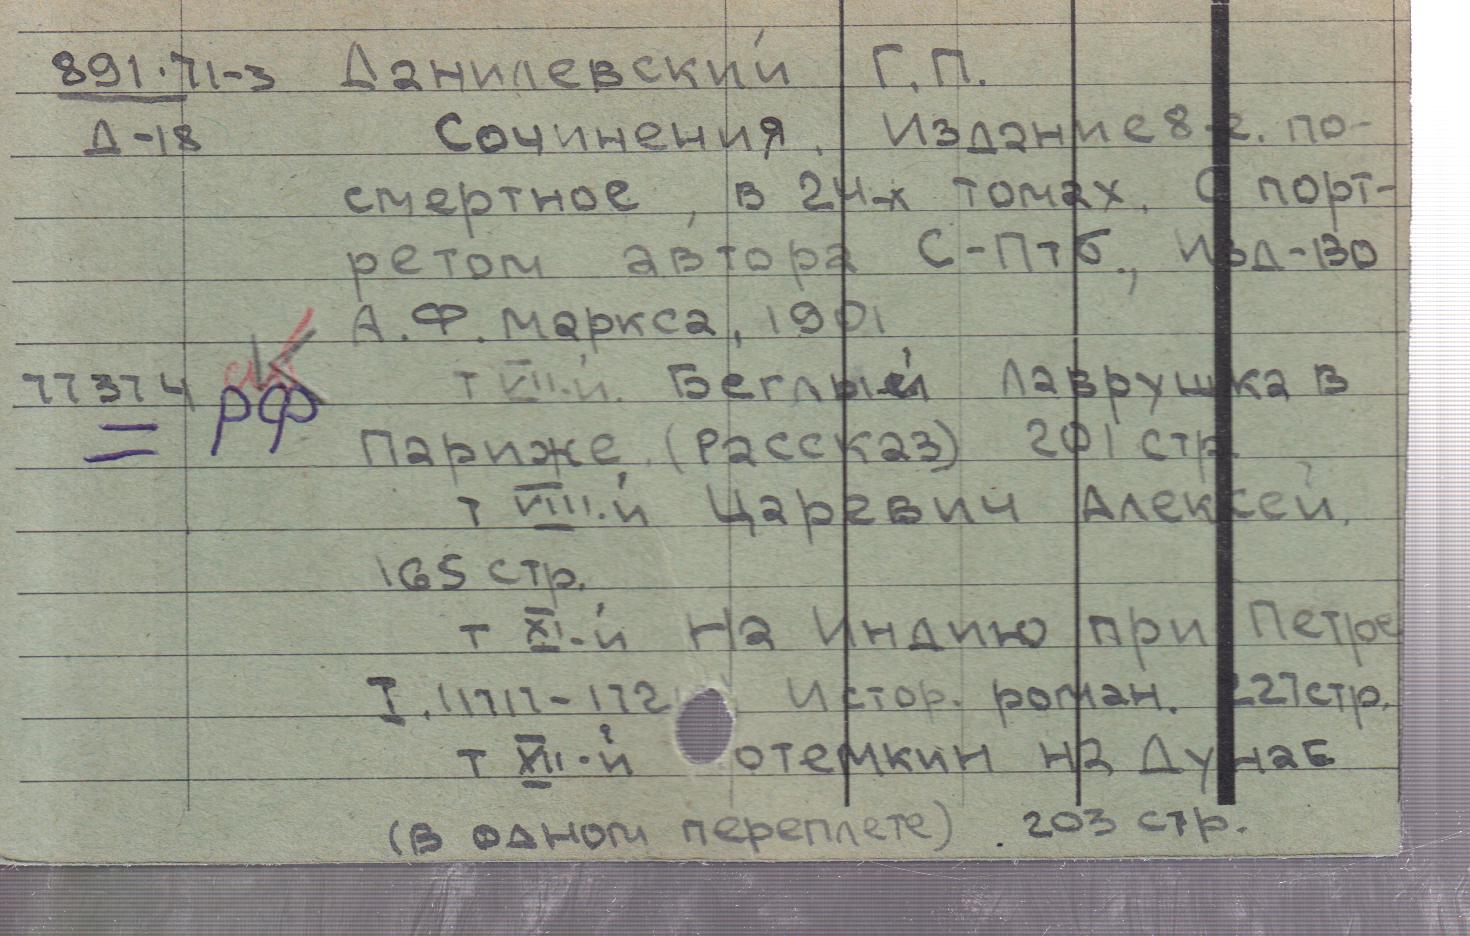 891.71-3 Данилевский Г.П.
Д-18 Сочинения. Издание 8-е. по-
смертное, в 24-х томах. С порт-
ретом автора С-Птб., Изд-во
А.Ф. Маркса, 1901
77374 РФ т VII-й. Беглый Лаврушка в
Париже. (Рассказ) 201 стр.
т VIII-й Царевич Алексей.
165 стр.
т XI-й На Индию при Петре
I. Истор. роман. 227 стр.
т XII-й отемкин на Дунае
(в одном переплете). 203 стр.